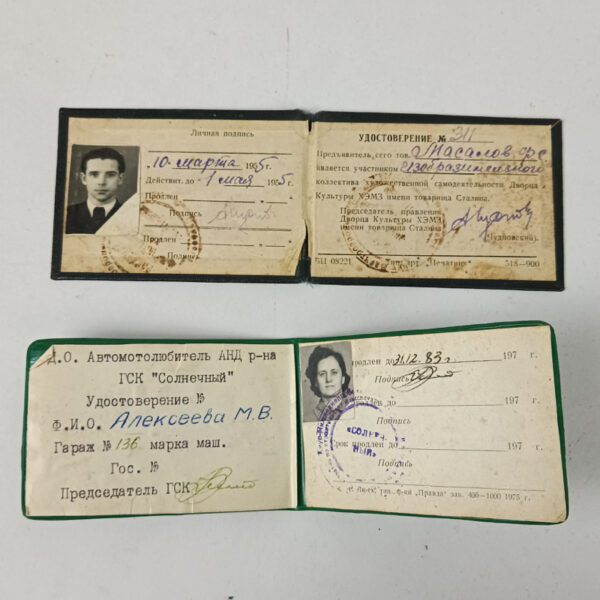 Личная подпись
10 марта 1955 г.
Действит. до 1 мая 1955 г.
Продлен
Подпись
Продлен
Подпись
УДОСТОВЕРЕНИЕ № 311
Предъявитель сего тов.
является участником Изобразительного
коллектива художественной самодеятельности Дворца
Культуры ХЭМЗ имени товарища Сталина.
Председатель правления
Дворца Культуры ХЭМЗ
имени товарища Сталина
(Чудновский)
БЦ 08221. Тип. арт. „Печатник“ 518—900
Д.О. Автомотолюбитель АНД р-на
ГСК "Солнечный"
Удостоверение №
Ф.И.О. Алексеева М.В.
Гараж № 136 марка маш.
Гос. №
Председатель ГСК
родлен до 31.12.83 г. 197 г.
Подпись
лен до 197 г.
Подпись
Срок продлен до 197 г.
Подпись
«СОЛНЕЧ-
НЫЙ»
ф-ий „Правда“ зак. 406-1000 1975 г.